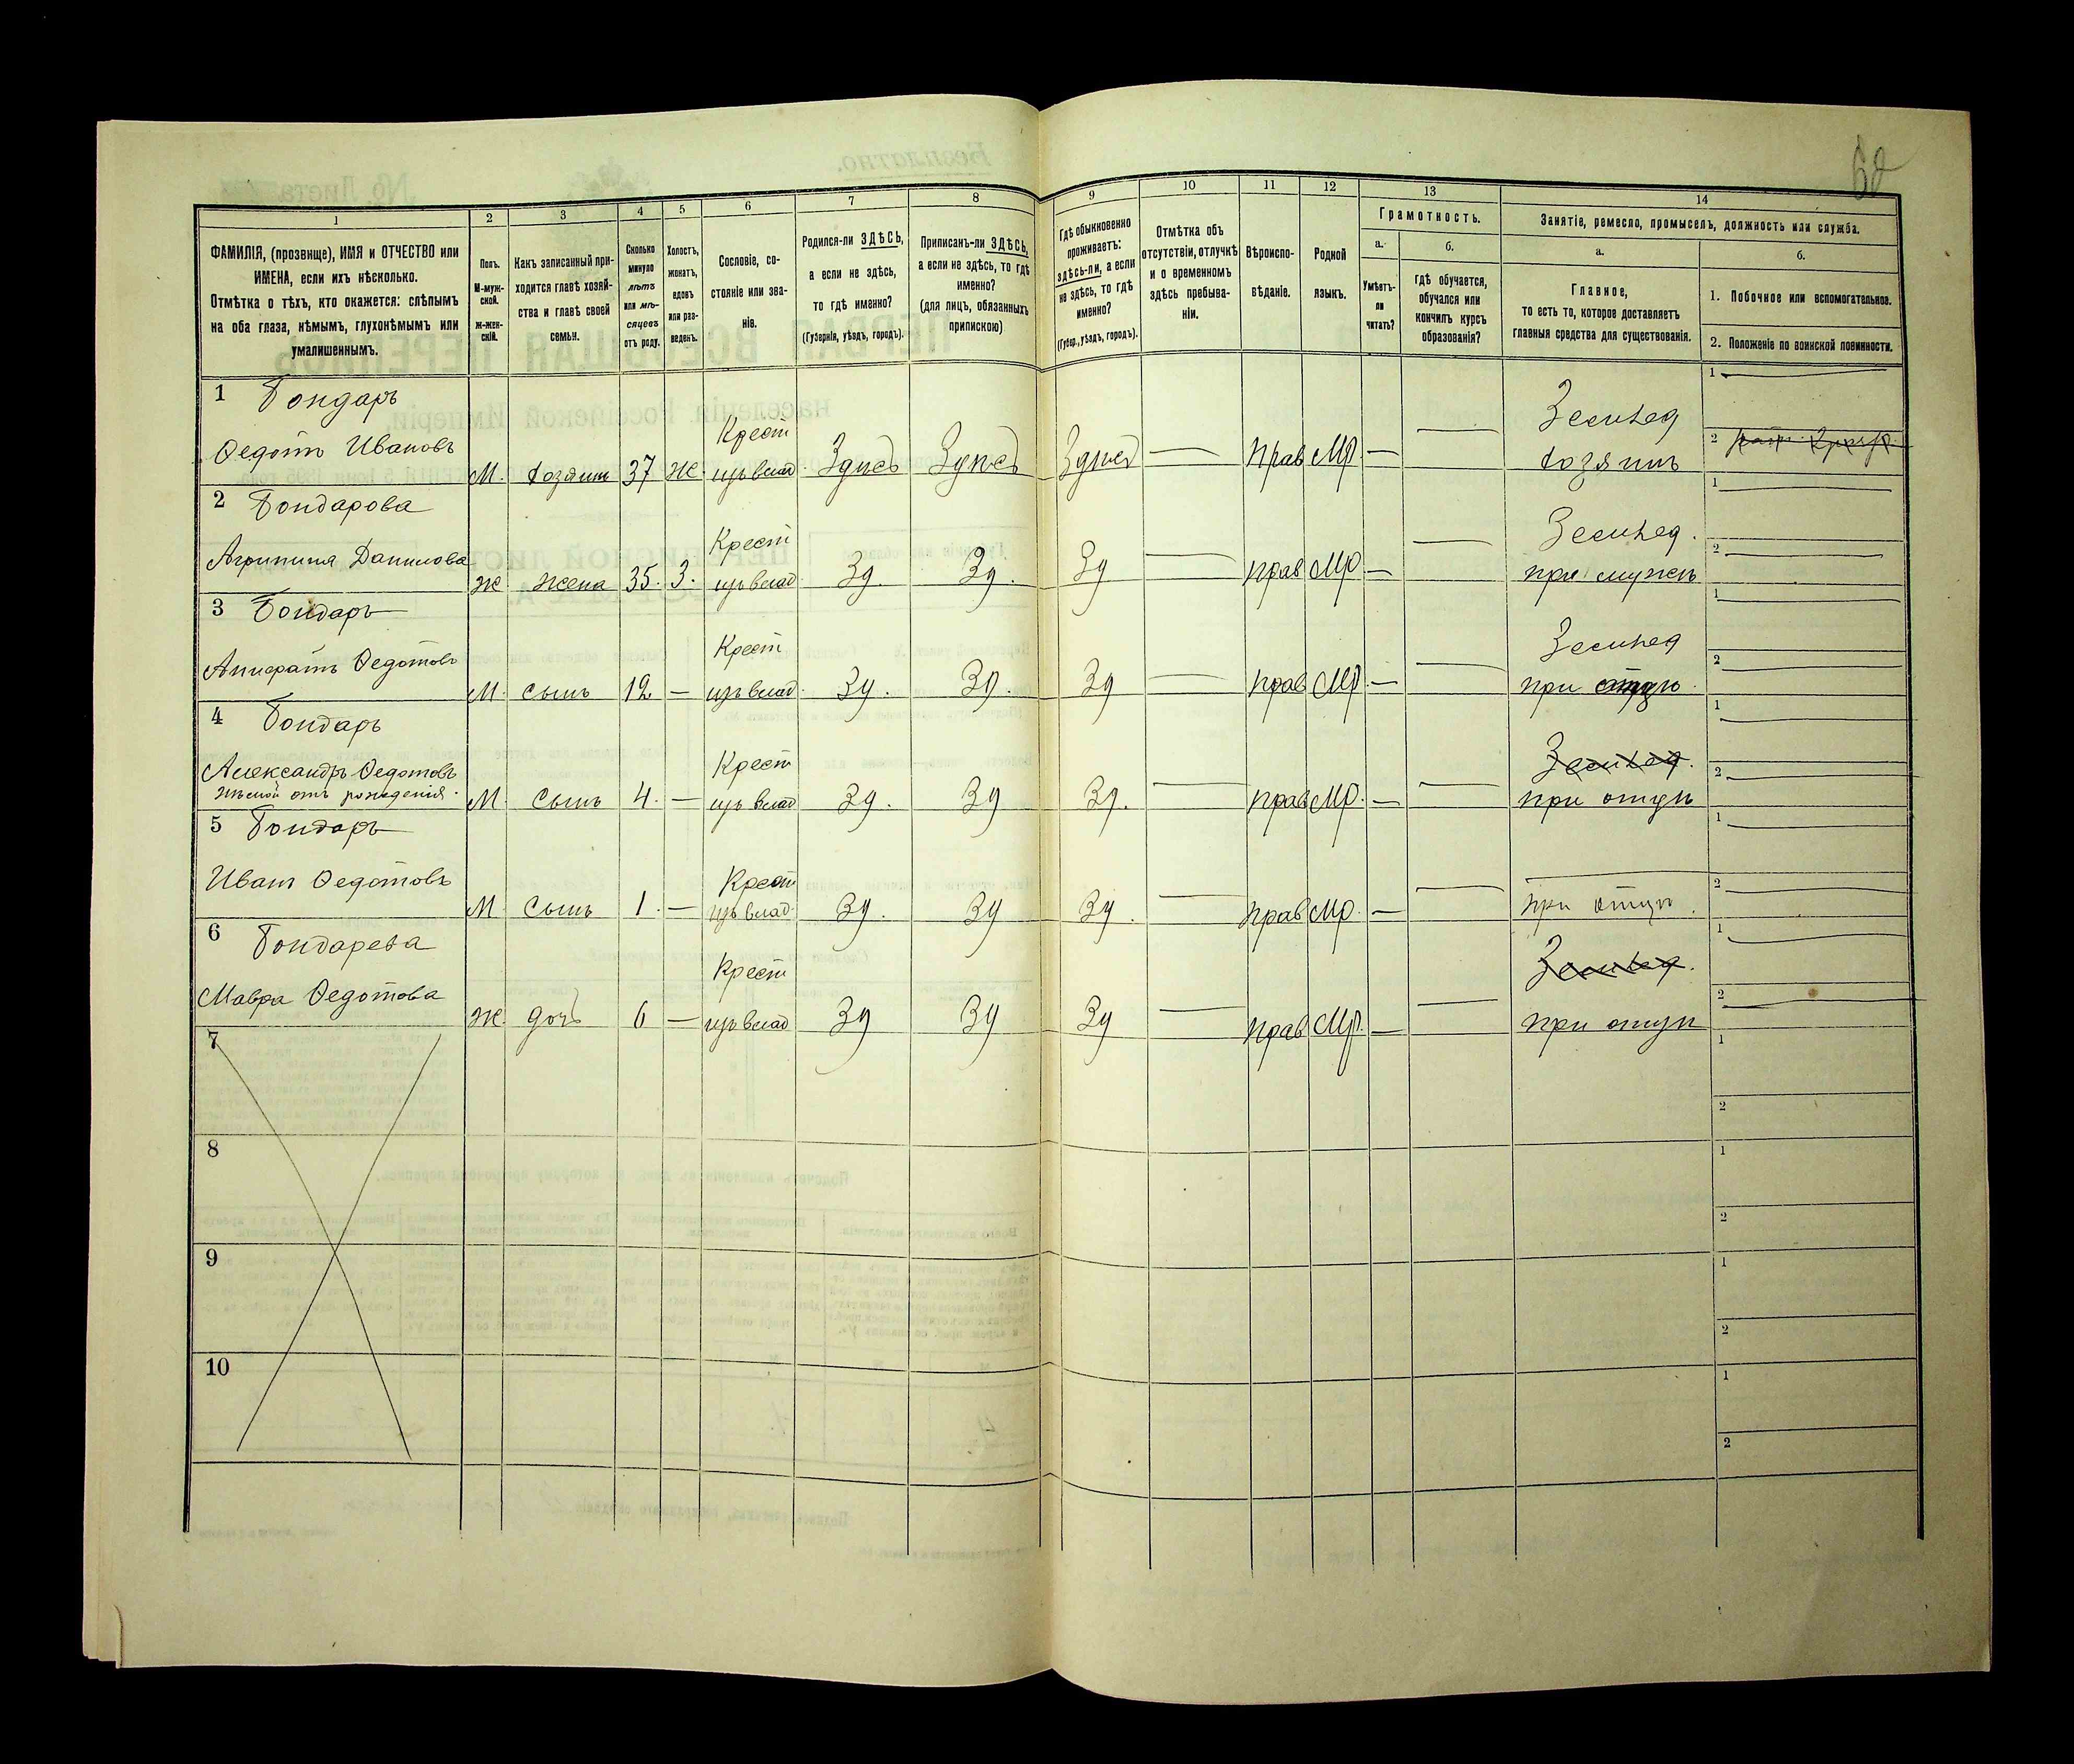 68
1
2
3
4
5
6
7
8
9
10
11
12
13
14
ФАМИЛІЯ, (прозвище), ИМЯ и ОТЧЕСТВО или
ИМЕНА, если ихъ нѣсколько.
Отмѣтка о тѣхъ, кто окажется: слѣпымъ
на оба глаза, нѣмымъ, глухонѣмымъ или
умалишеннымъ.
Полъ.
М-муж-
ской.
ж-жен-
скій.
Какъ записанный при-
ходится главѣ хозяй-
ства и главѣ своей
семьи.
Сколько
минуло
лѣтъ
или мѣ-
сяцевъ
отъ роду.
Холостъ,
женатъ,
вдовъ
или раз-
веденъ.
Сословіе, со-
стояніе или зва-
ніе.
Родился-ли ЗДѢСЬ,
а если не здѣсь,
то гдѣ именно?
(Губернія, уѣздъ, городъ).
Приписанъ-ли ЗДѢСЬ,
а если не здѣсь, то гдѣ
именно?
(для лицъ, обязанныхъ
припискою)
Гдѣ обыкновенно
проживаетъ:
здѣсь-ли, а если
не здѣсь, то гдѣ
именно?
(Губер., уѣздъ, городъ).
Отмѣтка объ
отсутствіи, отлучкѣ
и о временномъ
здѣсь пребыва-
ніи.
Вѣроиспо-
вѣданіе.
Родной
языкъ.
Грамотность.
а.
б.
Умѣетъ-
ли
читать?
гдѣ обучается,
обучался или
кончилъ курсъ
образованія?
Занятіе, ремесло, промыселъ, должность или служба.
а.
б.
Главное,
то есть то, которое доставляетъ
главныя средства для существованія.
1. Побочное или вспомогательное.
2. Положеніе по воинской повинности.
1 Бондаръ
Ѳедотъ Ивановъ
М. Хозяинъ 37 Ж. Крест
изъ влад. Здѣсь Здѣсь Здѣсь — Прав Мр. — — Земλед
Хозяинъ
1 —
2
2 Бондарова
Агрипина Данилова
Ж Жена 35. З. Крест
изъ влад Зд. Зд. Зд — прав Мр — — Земλед.
при мужѣ
1 —
2 —
3 Бондаръ
Анифатъ Ѳедотовъ
М. сынъ 12 — Крест
изъ влад. Зд. Зд. Зд — прав Мр. — — Земλед
при отцѣ
1 —
2 —
4 Бондаръ
Александръ Ѳедотовъ
нѣмой отъ рожденія.
М. Сынъ 4. — Крест
изъ влад Зд. Зд Зд. — прав Мр. — — Земλед.
при отцѣ
1 —
2 —
5 Бондаръ
Иванъ Ѳедотовъ
М. Сынъ 1. — Крест
изъ влад. Зд. Зд Зд. — прав Мр. — — при отцѣ.
1 —
2 —
6 Бондарева
Мавра Ѳедотова
Ж. дочь 6 — Крест
изъ влад Зд Зд Зд — прав Мр. — — Земλед.
при отцѣ
1 —
2 —
7
1
2
8
1
2
9
1
2
10
1
2